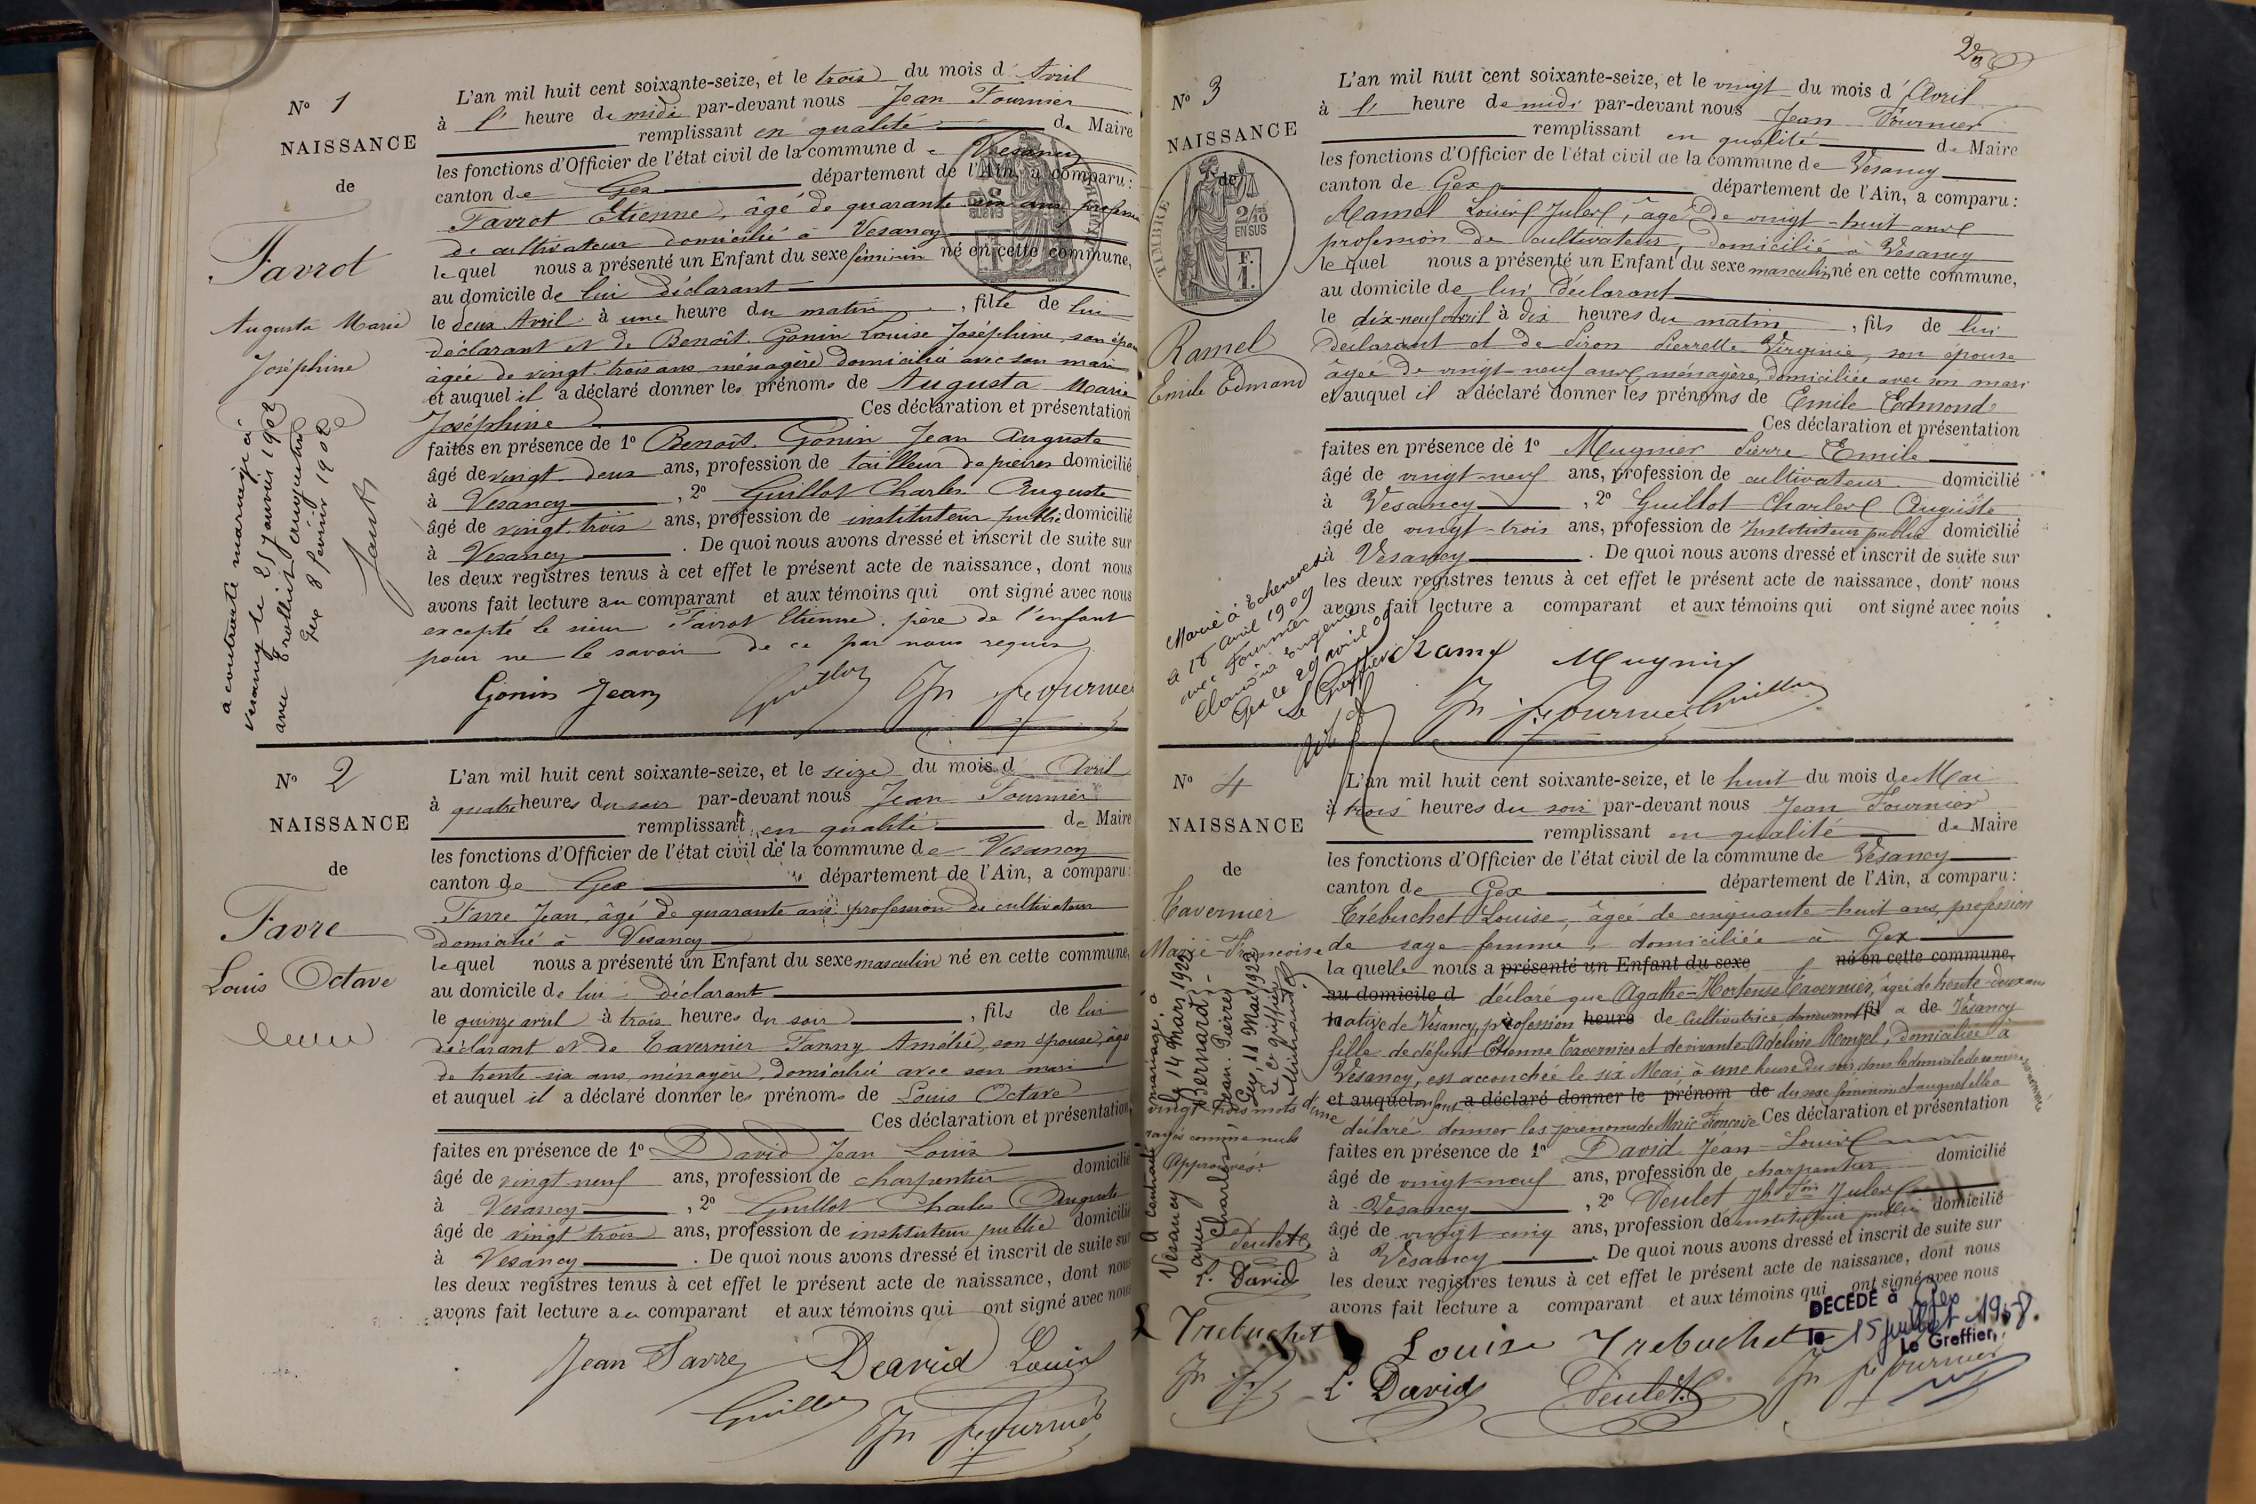 N° 1
NAISSANCE
de
Favrot
Augusta Marie
Joséphine
a contracté mariage à
Vesancy le 25 janvier 1902
avec
Gex 8 février 1902
L'an mil huit cent soixante-seize, et le trois du mois d'Avril
à l' heure de midi par-devant nous Jean Fournier
remplissant en qualité de Maire
les fonctions d'Officier de l'état civil de la commune de Vesancy
canton de Gex département de l'Ain, a comparu :
Favrot Etienne, âgé de quarante six ans profession
de cultivateur domicilié à Vesancy
lequel nous a présenté un Enfant du sexe féminin né en cette commune,
au domicile de lui déclarant
le deux Avril à une heure du matin , fille de lui
déclarant et de Benoît-Gonin Louise Joséphine, son épouse
âgée de vingt-trois ans ménagère domiciliée avec son mari
et auquel il a déclaré donner les prénoms de Augusta Marie
Joséphine Ces déclaration et présentation
faites en présence de 1° Benoît-Gonin Jean Auguste
âgé de vingt-deux ans, profession de tailleur de pierres domicilié
à Vesancy , 2° Guillot Charles Auguste
âgé de vingt-trois ans, profession de instituteur public domicilié
à Vesancy . De quoi nous avons dressé et inscrit de suite sur
les deux registres tenus à cet effet le présent acte de naissance, dont nous
avons fait lecture au comparant et aux témoins qui ont signé avec nous
excepté le sieur Favrot Etienne, père de l'enfant
pour ne le savoir de ce par nous requis
Gonin Jean Guillot Jn Fournier
N° 2
NAISSANCE
de
Favre
Louis Octave
L'an mil huit cent soixante-seize, et le seize du mois d'Avril
à quatre heures du soir par-devant nous Jean Fournier
remplissant en qualité de Maire
les fonctions d'Officier de l'état civil de la commune de Vesancy
canton de Gex département de l'Ain, a comparu :
Favre Jean, âgé de quarante ans profession de cultivateur
domicilié à Vesancy
lequel nous a présenté un Enfant du sexe masculin né en cette commune,
au domicile de lui déclarant
le quinze avril à trois heures du soir , fils de lui
déclarant et de Tavernier Fanny Amélie, son épouse, âgée
de trente-six ans, ménagère, domiciliée avec son mari
et auquel il a déclaré donner les prénoms de Louis Octave
Ces déclaration et présentation
faites en présence de 1° David Jean Louis
âgé de vingt neuf ans, profession de charpentier domicilié
à Vesancy , 2° Guillot Charles Auguste
âgé de vingt trois ans, profession de instituteur public domicilié
à Vesancy . De quoi nous avons dressé et inscrit de suite sur
les deux registres tenus à cet effet le présent acte de naissance, dont nous
avons fait lecture au comparant et aux témoins qui ont signé avec nous
Jean Favre David Louis
Guillot Jn Fournier
N° 3
NAISSANCE
de
TIMBRE
2/10
EN SUS
F.
1.
Ramel
Emile Edmond
Marié à Echenevex
le 18 avril 1909
avec Fournier
Eugénie
Gex le 29 avril 09
Le Greffier
L'an mil huit cent soixante-seize, et le vingt du mois d'Avril
à l' heure de midi par-devant nous Jean Fournier
remplissant en qualité de Maire
les fonctions d'Officier de l'état civil de la commune de Vesancy
canton de Gex département de l'Ain, a comparu :
Ramel Louis Jules, âgé de vingt-huit ans
profession de cultivateur, domicilié à Vesancy
lequel nous a présenté un Enfant du sexe masculin né en cette commune,
au domicile de lui déclarant
le dix-neuf avril à dix heures du matin , fils de lui
déclarant et de Piron Pierrette Virginie, son épouse
âgée de vingt-neuf ans ménagère, domiciliée avec son mari
et auquel il a déclaré donner les prénoms de Emile Edmond
Ces déclaration et présentation
faites en présence de 1° Mugnier Pierre Emile
âgé de vingt-neuf ans, profession de cultivateur domicilié
à Vesancy , 2° Guillot Charles Auguste
âgé de vingt-trois ans, profession de Instituteur public domicilié
à Vesancy . De quoi nous avons dressé et inscrit de suite sur
les deux registres tenus à cet effet le présent acte de naissance, dont nous
avons fait lecture a comparant et aux témoins qui ont signé avec nous
Ramel Mugnier
Jn Fournier Guillot
N° 4
NAISSANCE
de
Tavernier
Marie-Françoise
A contracté mariage à
Vesancy le 14 Mars 1922
avec Bernard
Charles Jean Pierre
Gex, 11 Mai 1922
Le Greffier
vingt-trois mots
rayés comme nuls
Approuvés:
Deulet
L. David
L Trebuchet
Jn
L'an mil huit cent soixante-seize, et le huit du mois de Mai
à trois heures du soir par-devant nous Jean Fournier
remplissant en qualité de Maire
les fonctions d'Officier de l'état civil de la commune de Vesancy
canton de Gex département de l'Ain, a comparu :
Trébuchet Louise, âgée de cinquante-huit ans, profession
de sage-femme, domiciliée à Gex
laquelle nous a présenté un Enfant du sexe né en cette commune,
au domicile d déclaré que Agathe-Hortense Tavernier, âgée de trente-deux ans
native de Vesancy, profession heure de Cultivatrice, fil a de Vesancy
fille de défunt Etienne Tavernier et de vivante Adéline Rougel, domiciliée à
Vesancy, est accouchée le six Mai à une heure du soir dans le domicile de sa mère
et auquel enfant a déclaré donner le prénom de du sexe féminin et auquel elle a
déclaré donner les prénoms de Marie Françoise Ces déclaration et présentation
faites en présence de 1° David Jean-Louis
âgé de vingt-neuf ans, profession de charpentier domicilié
à Vesancy , 2° Deulet Jh Fois Jules
âgé de vingt cinq ans, profession de instituteur public domicilié
à Vesancy . De quoi nous avons dressé et inscrit de suite sur
les deux registres tenus à cet effet le présent acte de naissance, dont nous
avons fait lecture a comparant et aux témoins qui ont signé avec nous
DÉCÉDÉ à Gex
le 15 juillet 1958.
Le Greffier,
Louise Trebuchet
L. David Deulet Jn Fournier